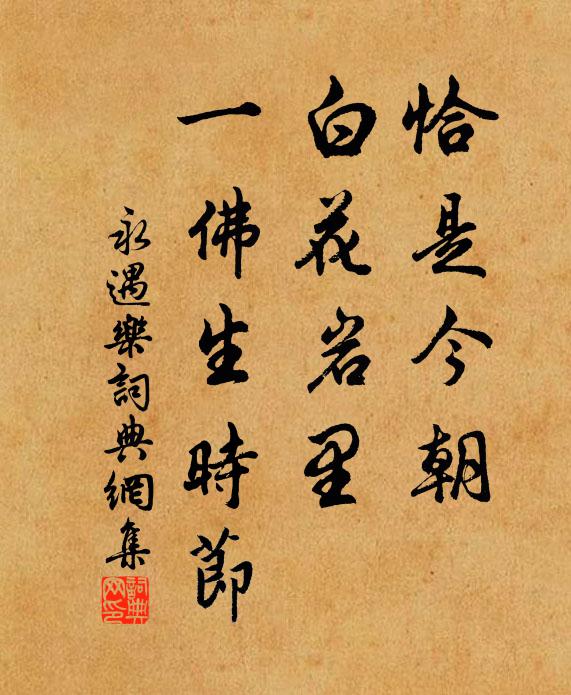 恰是今朝
白花岩里
一佛生時節
永遇樂詞典網集
詞典網印